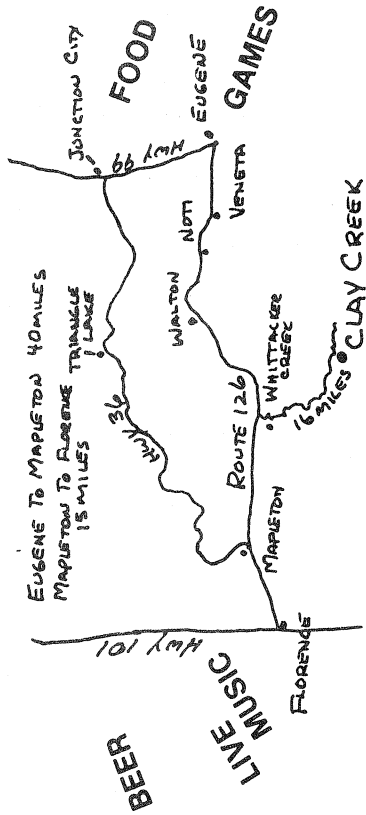 BEER
LIVE
MUSIC
FOOD
GAMES
EUGENE TO MAPLETON 40 MILES
MAPLETON TO FLORENCE
15 MILES
HWY 101
FLORENCE
MAPLETON
HWY 36
TRIANGLE
LAKE
ROUTE 126
WHITTACKER
CREEK
16 MILES
CLAY CREEK
WALTON
NOTI
VENETA
JUNCTION CITY
HWY 99
EUGENE